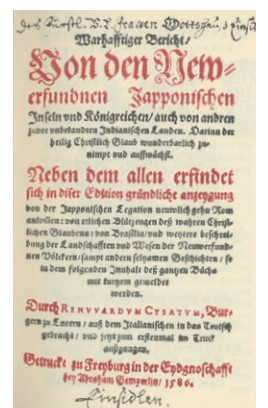 Warhafftiger Bericht/
Von den New-
erfundnen Japponischen
Inseln vnd Königreichen/ auch von andren
zuvor vnbekandten Indianischen Landen. Darinn der
heilig Christlich Glaub wunderbarlich zu-
nimpt vnd auffwächst.
Neben dem allen erfindet
sich in diser Edition gründliche anzeygung
von der Japponischen Legation newlich gehn Rom
ankommen: von etlichen Blützeugen deß wahren Christ-
lichen Glaubens: von Brasilia: vnd weytere beschrei-
bung der Landschafften vnd Wesen der Newerfund-
nen Völckern/ sampt andern seltzamen Geschichten/ so
in dem folgenden Innhalt deß gantzen Büchs
mit kurtzem gemeldet
werden.
Durch RENVVARDVM CYSATVM, Bur-
gern zu Lucern/ auß dem Italianischen in das Teutsch
gebracht/ vnd jetz zum erstenmal im Truck
außgangen.
Getruckt zu Freyburg in der Eydgnoschafft
bey Abraham Gemperlin/ 1586.
Einsidlen.